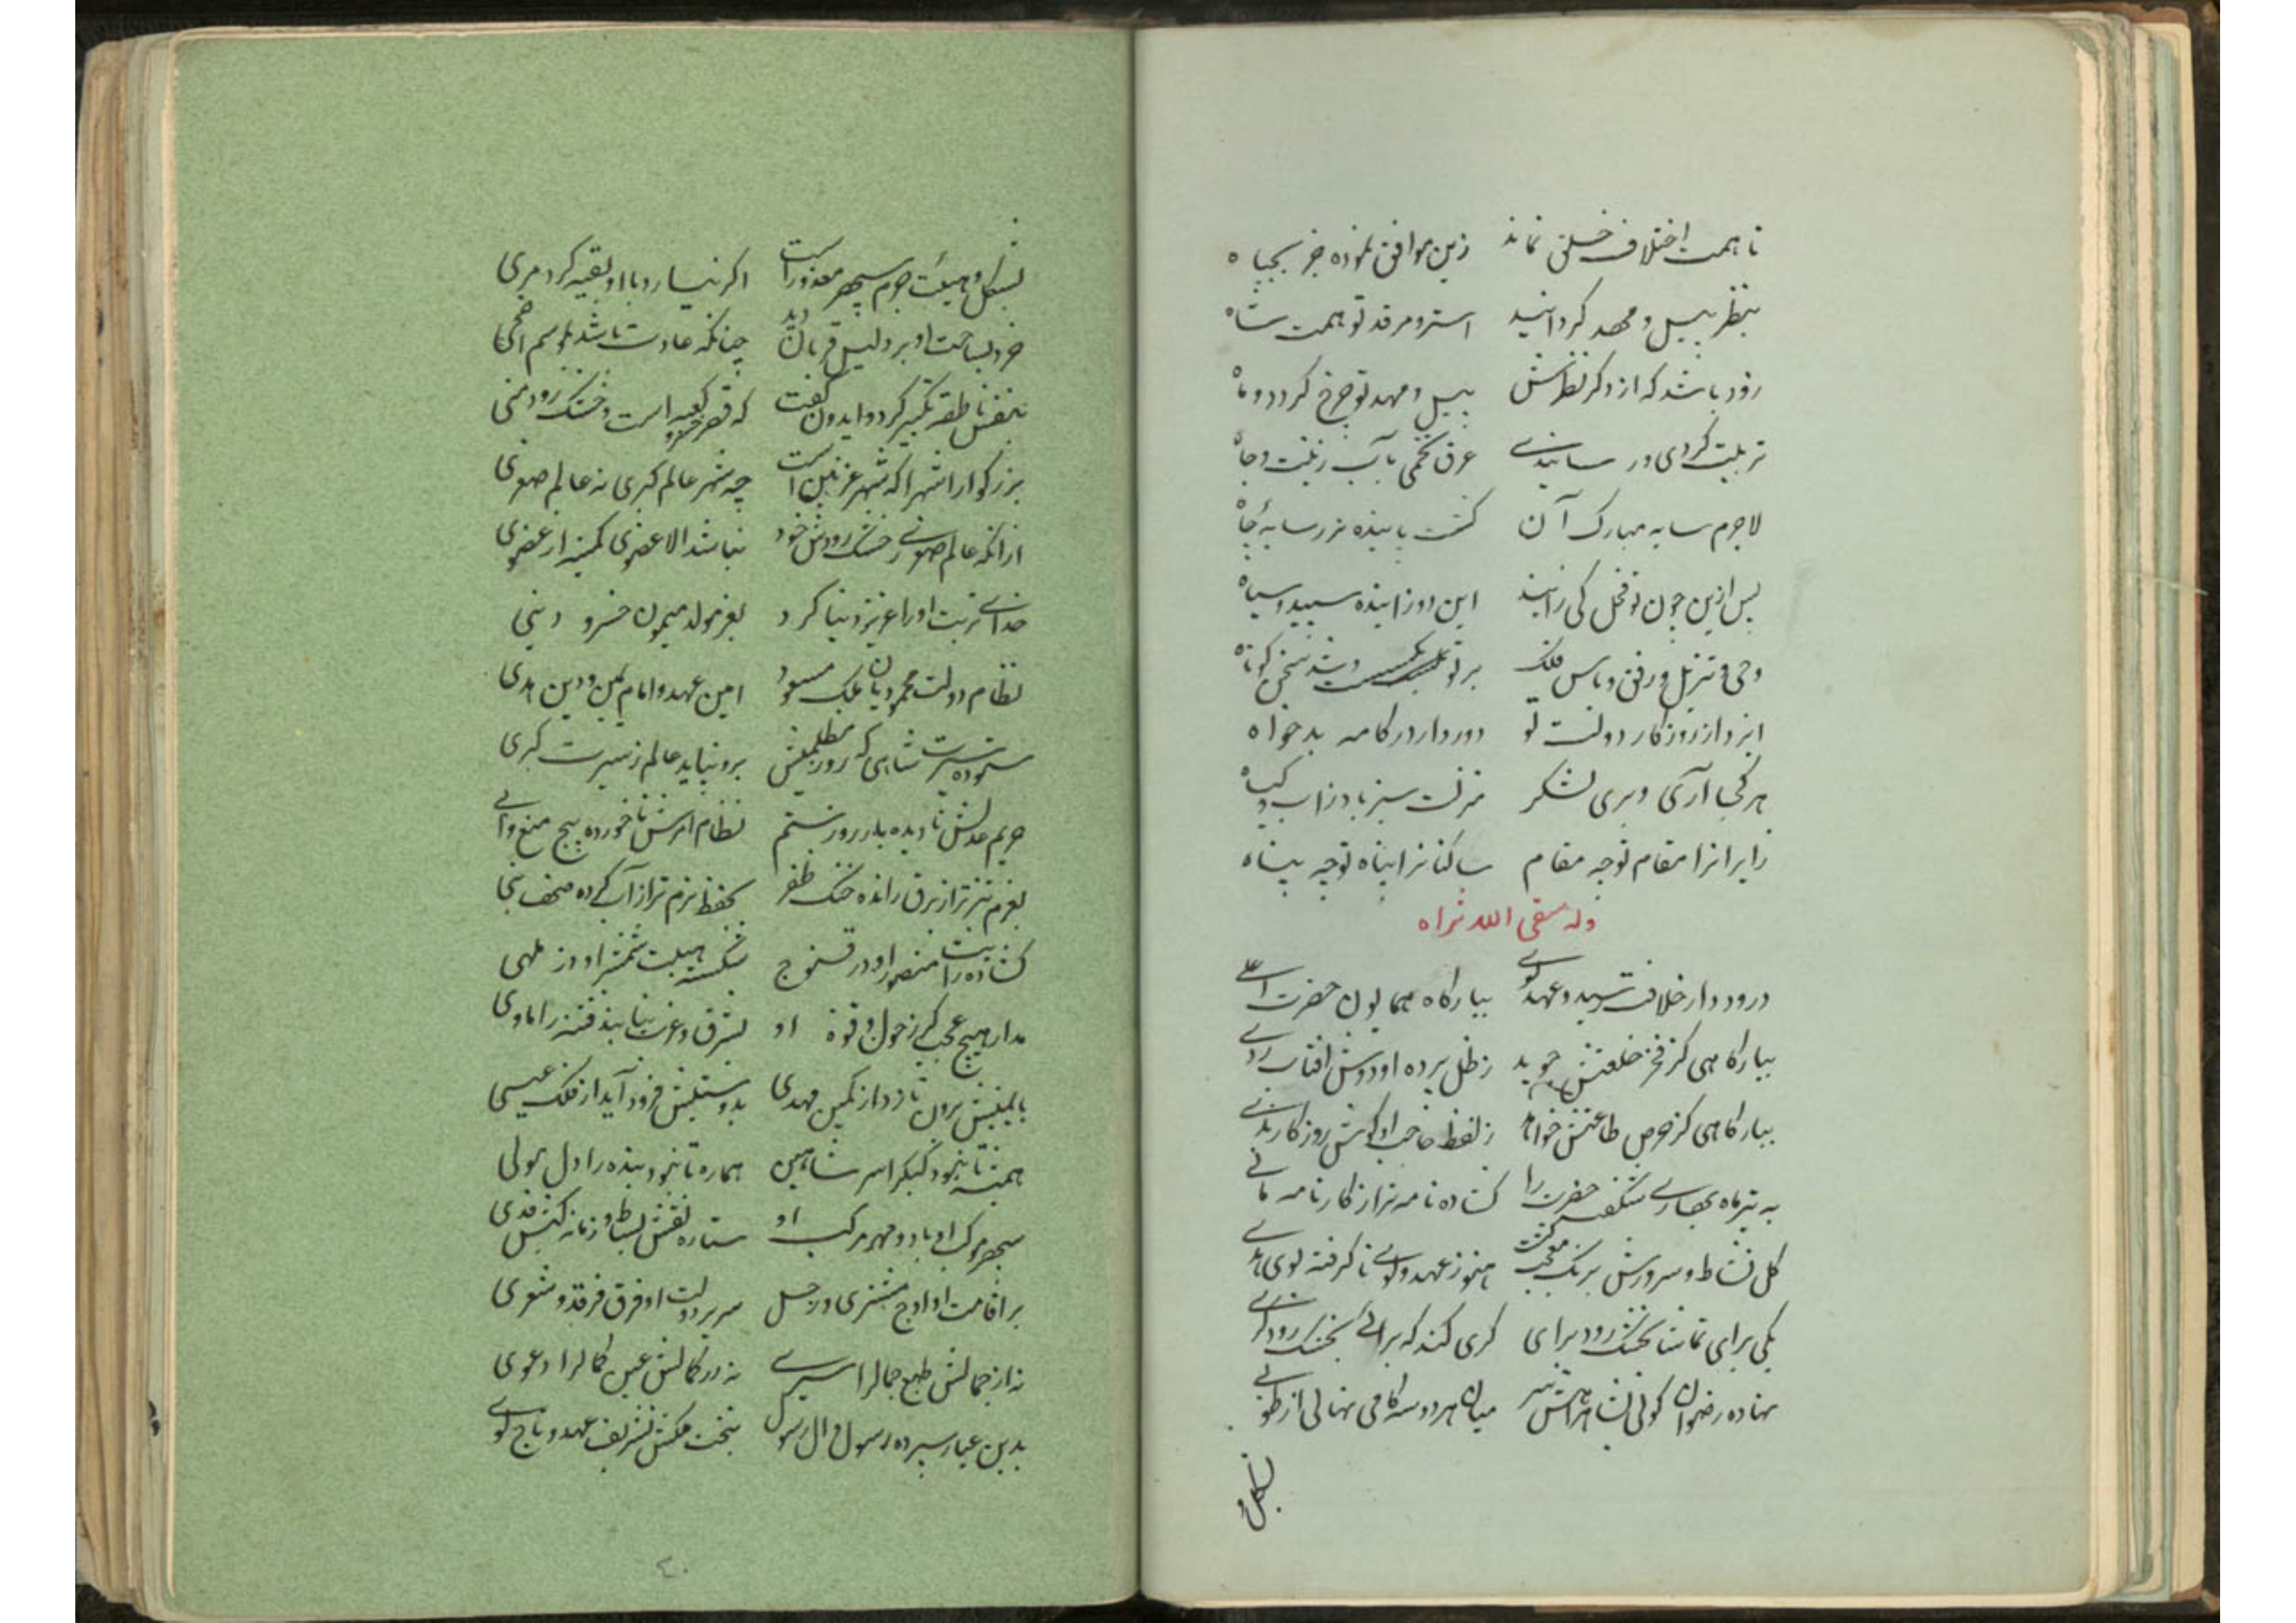 تا همت اختلاف خلق نماند زین موافق نموده جز بجباه
بنظر پیل و مهد کردانید استر و مرقد تو همت شاه
زود باشد که از دکر نظرش پیل و مهد تو چرخ کردد و ماه
تربیت کردی و رسانیدی عرق تخمی بآب زینت و جاه
لاجرم سایه مبارک آن کشت پاینده بر سایه جاه
پس ازین چون تو فحل کی زایند این دو زاینده سپید و سیاه
وحی و تنزیل و رفق و باس ملک بر تو و شد سخن کوتاه
ایزد از روزکار دولت تو دور داراد کامه بدخواه
هر کجا آری و بری لشکر منزلت سبز باد ز آب و کیاه
زایرانرا مقام تو چه مقام ساکنانرا پناه تو چه پناه
وله سقی الله ثراه
درود دار خلافت رسید و عهد لوی ببارکاه همایون حضرت اعلی
ببارکاهی کز فخر خلعتش جوید ز ظل پرده او دوش افتاب ردی
ببارکاهی کز حرص طاعتش خواهد ز لفظ حاجب او کوش روزکار ندی
به تیرماه بهاری شکفت حضرت را کشاده نامه‌تر از کارنامه مانی
کل نشاط و سرورش برنک معجب کشت هنوز عهد و لوی ناکرفته بوی
یکی برای تماشا بخشک رود برای کری کند که برائی بخشک رود کری
نهاده رضوان کوئی بشاهراهش سر میان هر دو سه کامی نهالی از طوبی
بشکل و
بشکل و هیئت جرم سپهر معذور است اکر نیارد با او بقیه کرد مری
خرد بساحت او بر دلیل قربان دید چنانکه عادت باشد بموسم اضحی
بنفس ناطقه تکبیر کرد و ایدون کفت که قصر خسرو کعبه است و خشک رود منی
بزرکوارا شهرا که شهر غزنین است چه شهر عالم کبری نه عالم صغری
از انکه عالم صغری ز خشک رودش خود نباشد الا عضوی کمینه از عضوی
خدای تربت او را عزیز دنیا کرد بعز مولد میمون خسرو دنیی
نظام دولت محمودیان ملک مسعود امین عهد و امام یمین و دین هدی
ستوده سیرت شاهی که روز مظلمتش برو نیاید عالم ز سیرت کبری
حریم عدلش نادیده بار روز ستم نظام امرش ناخورده هیچ منع و ابی
بعزم تیزتر از برق رانده خنک ظفر بحفظ نرم‌تر از آب کرده صحف
کشاده رایت منصور او در قنوج شکسته هیبت شمشیر او دز ملهی
مدار هیچ عجب کر ز حول و قوه او بشرق و غرب نیابند فتنه را ماوی
بایمنیش برون تازد از کمین مهدی بدوستیش فرود آید از فلک عیسی
همیشه تا بنجود کبک را سر شاهین هماره تا بنجود بنده را دل مولی
سپهر موکب او باد و مهر مرکب او ستاره نقش بساط و زمانه کبش فدی
بر اقامت او اوج مشتری و زحل سریر دولت او فرق فرقد و شعری
نه از جمالش طبع جمالرا سیری نه در کمالش عین کمالرا دعوی
بدین عیار سپرده رسول و ال رسول بتخت ملکش تشریف عهد و تاج لوی
٤٠